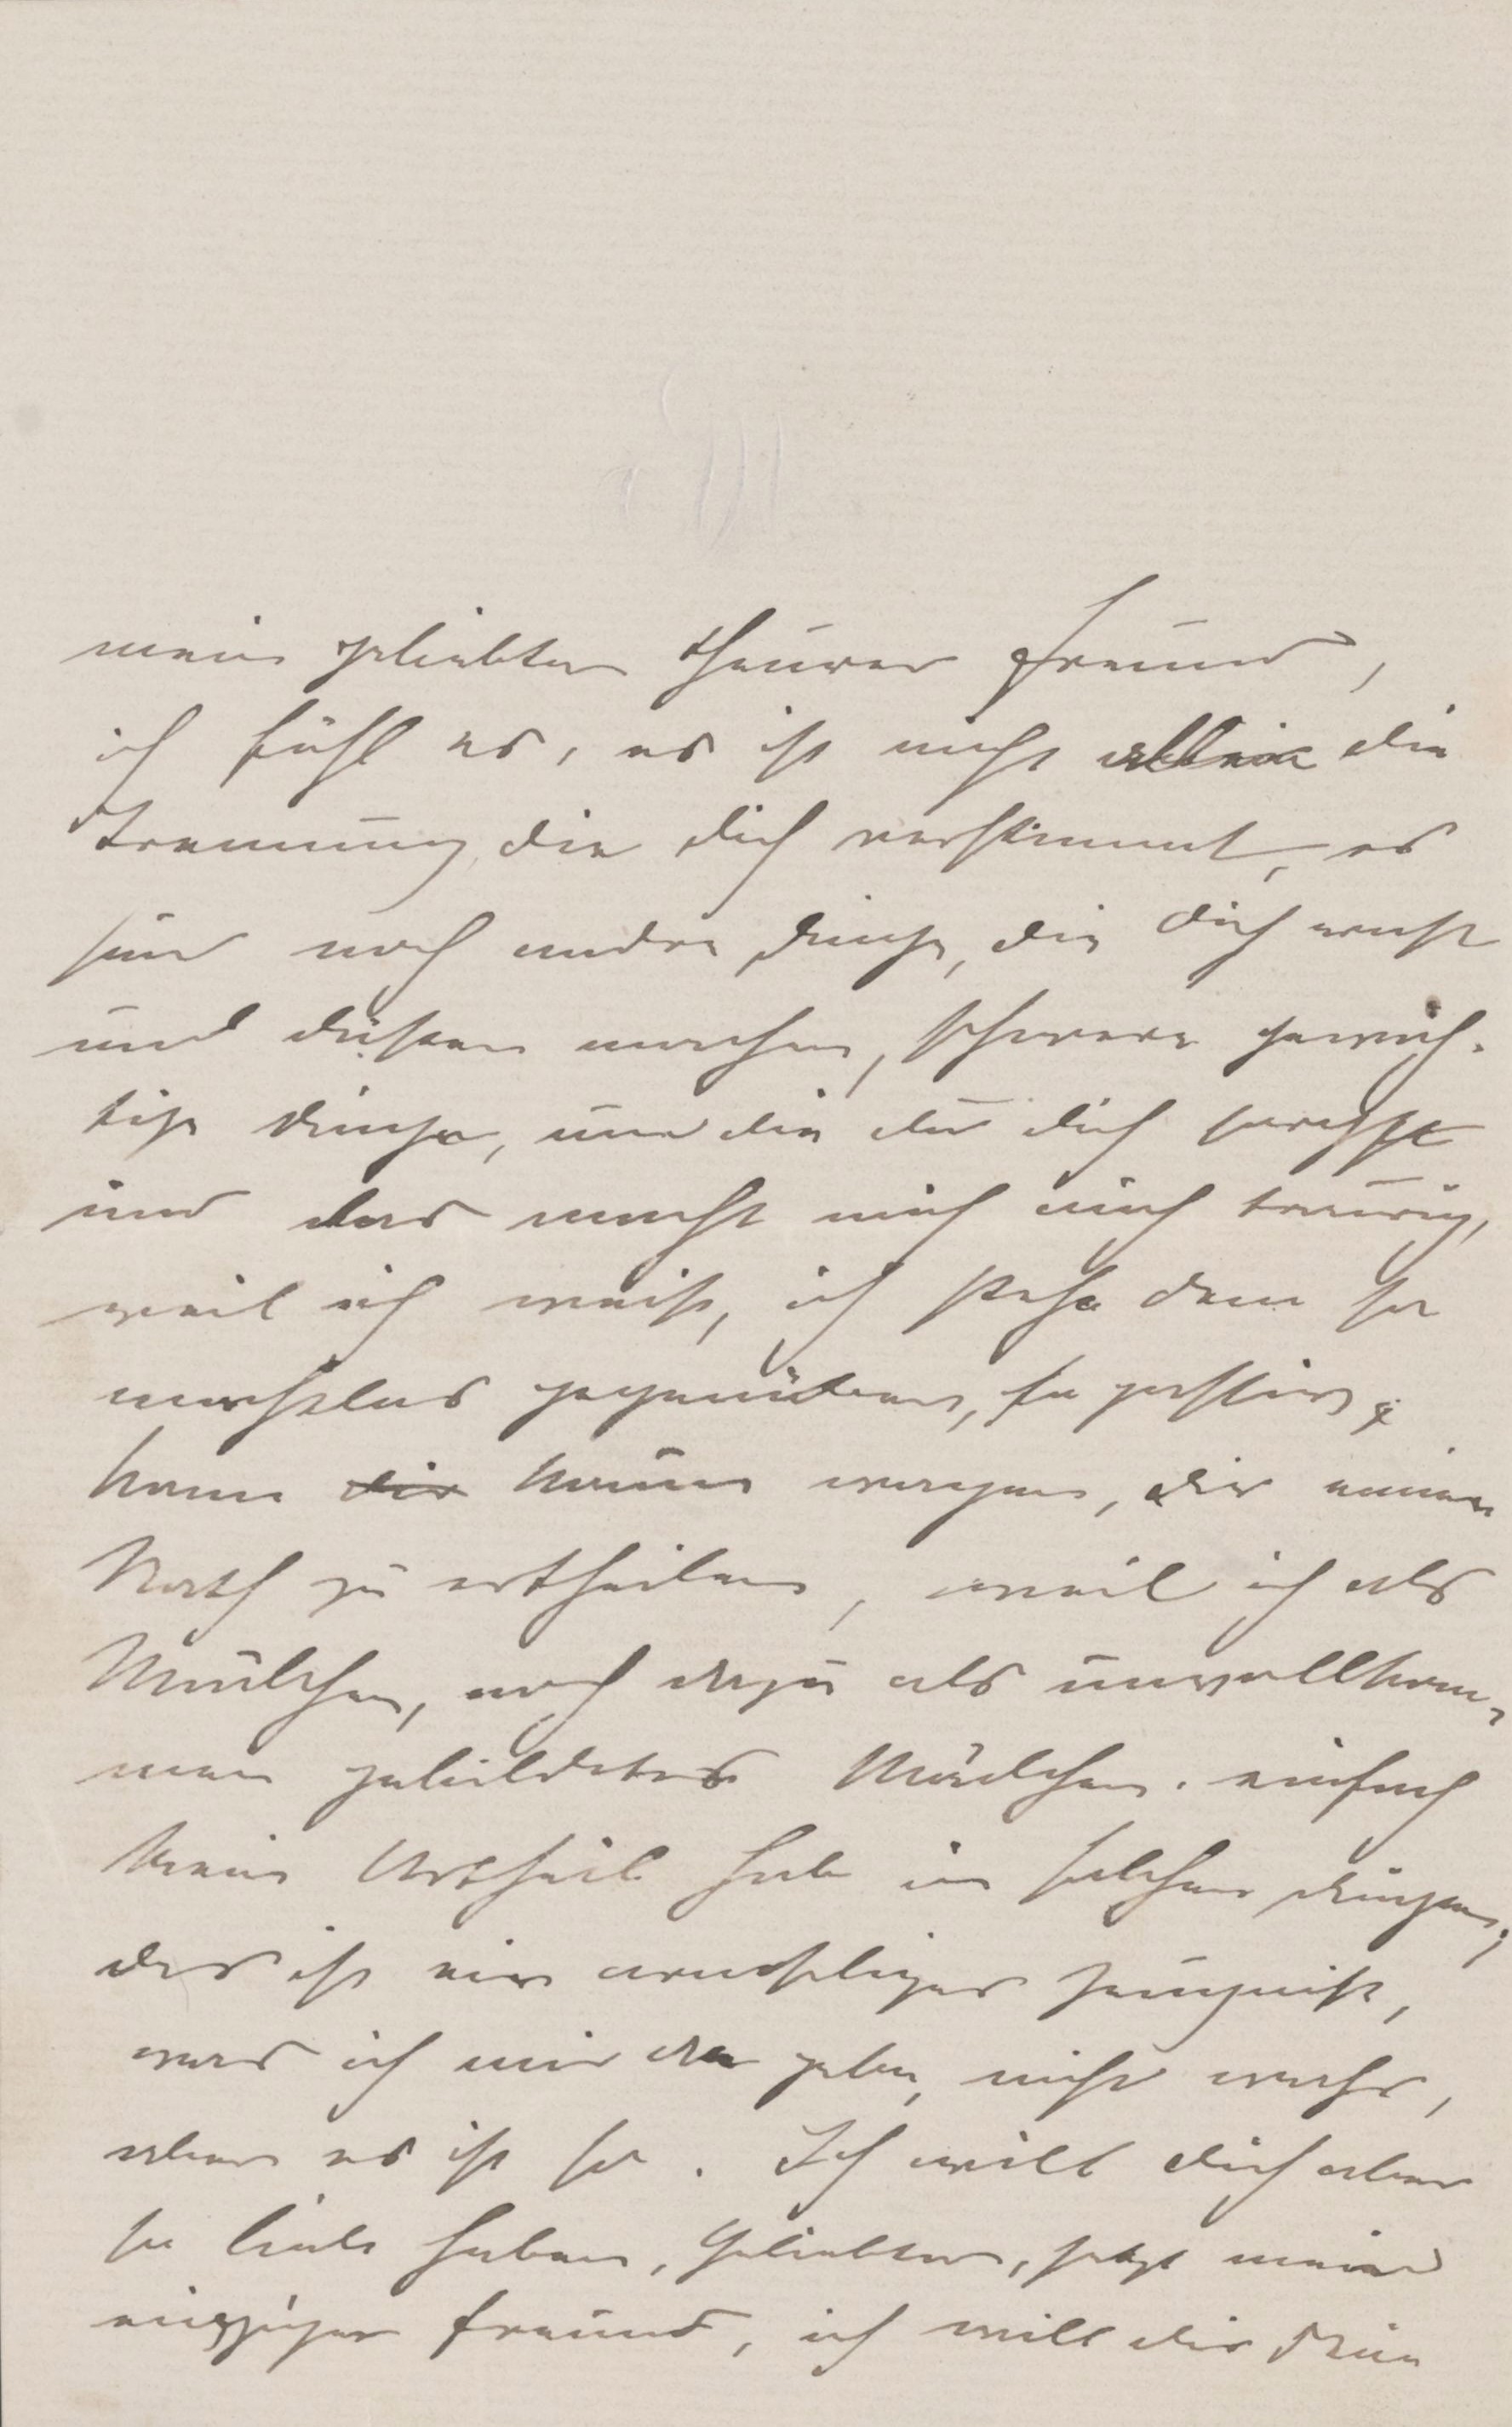 mein geliebter theurer Freund,
ich fühl es, es ist nicht allein die
Trennung, die dich verstimmt, es
sind noch andre Dinge, die dich ernst
und düster machen, schwere gewich-
tige Dinge, um die du dich sorgst
und das macht mich auch traurig,
weil ich weiß, ich stehe dem so
machtlos gegenüber, so passiv,
kann dir kaum wagen, dir einen
Rath zu ertheilen, weil ich als
Mädchen, noch dazu als unvollkom-
men gebildetes Mädchen einfach
kein Urtheil hab in solchen Dingen;
das ist ein armseliges Zeugniß,
was ich mir da gebe, nicht wahr,
aber es ist so. Ich will dich aber
so lieb haben, Geliebter, jetzt mein
einzziger Freund, ich will dir Dein